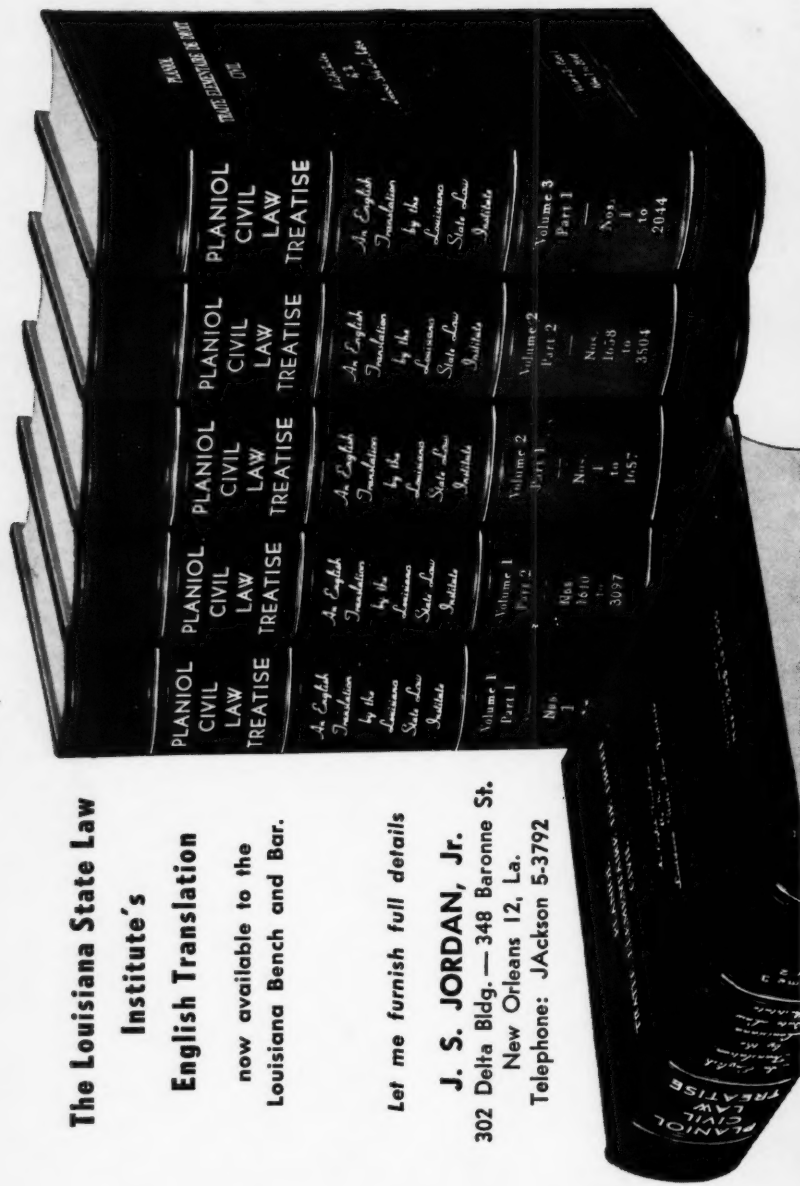 The Louisiana State Law
Institute's
English Translation
now available to the
Louisiana Bench and Bar.
Let me furnish full details
J. S. JORDAN, Jr.
302 Delta Bldg. — 348 Baronne St.
New Orleans 12, La.
Telephone: JAckson 5-3792
PLANIOL
CIVIL
LAW
TREATISE
An English
Translation
by the
Louisiana
State Law
Institute
Volume 1
Part 1
—
Nos.
1
PLANIOL
CIVIL
LAW
TREATISE
An English
Translation
by the
Louisiana
State Law
Institute
Volume 1
Part 2
—
Nos
1610
to
3097
PLANIOL
CIVIL
LAW
TREATISE
An English
Translation
by the
Louisiana
State Law
Institute
Volume 2
Part 1
—
Nos.
1
to
1657
PLANIOL
CIVIL
LAW
TREATISE
An English
Translation
by the
Louisiana
State Law
Institute
Volume 2
Part 2
—
Nos.
1658
to
3504
PLANIOL
CIVIL
LAW
TREATISE
An English
Translation
by the
Louisiana
State Law
Institute
Volume 3
Part 1
—
Nos.
1
to
2044
PLANIOL
TRAITE ELEMENTAIRE DE DROIT
CIVIL
PLANIOL
CIVIL
LAW
TREATISE